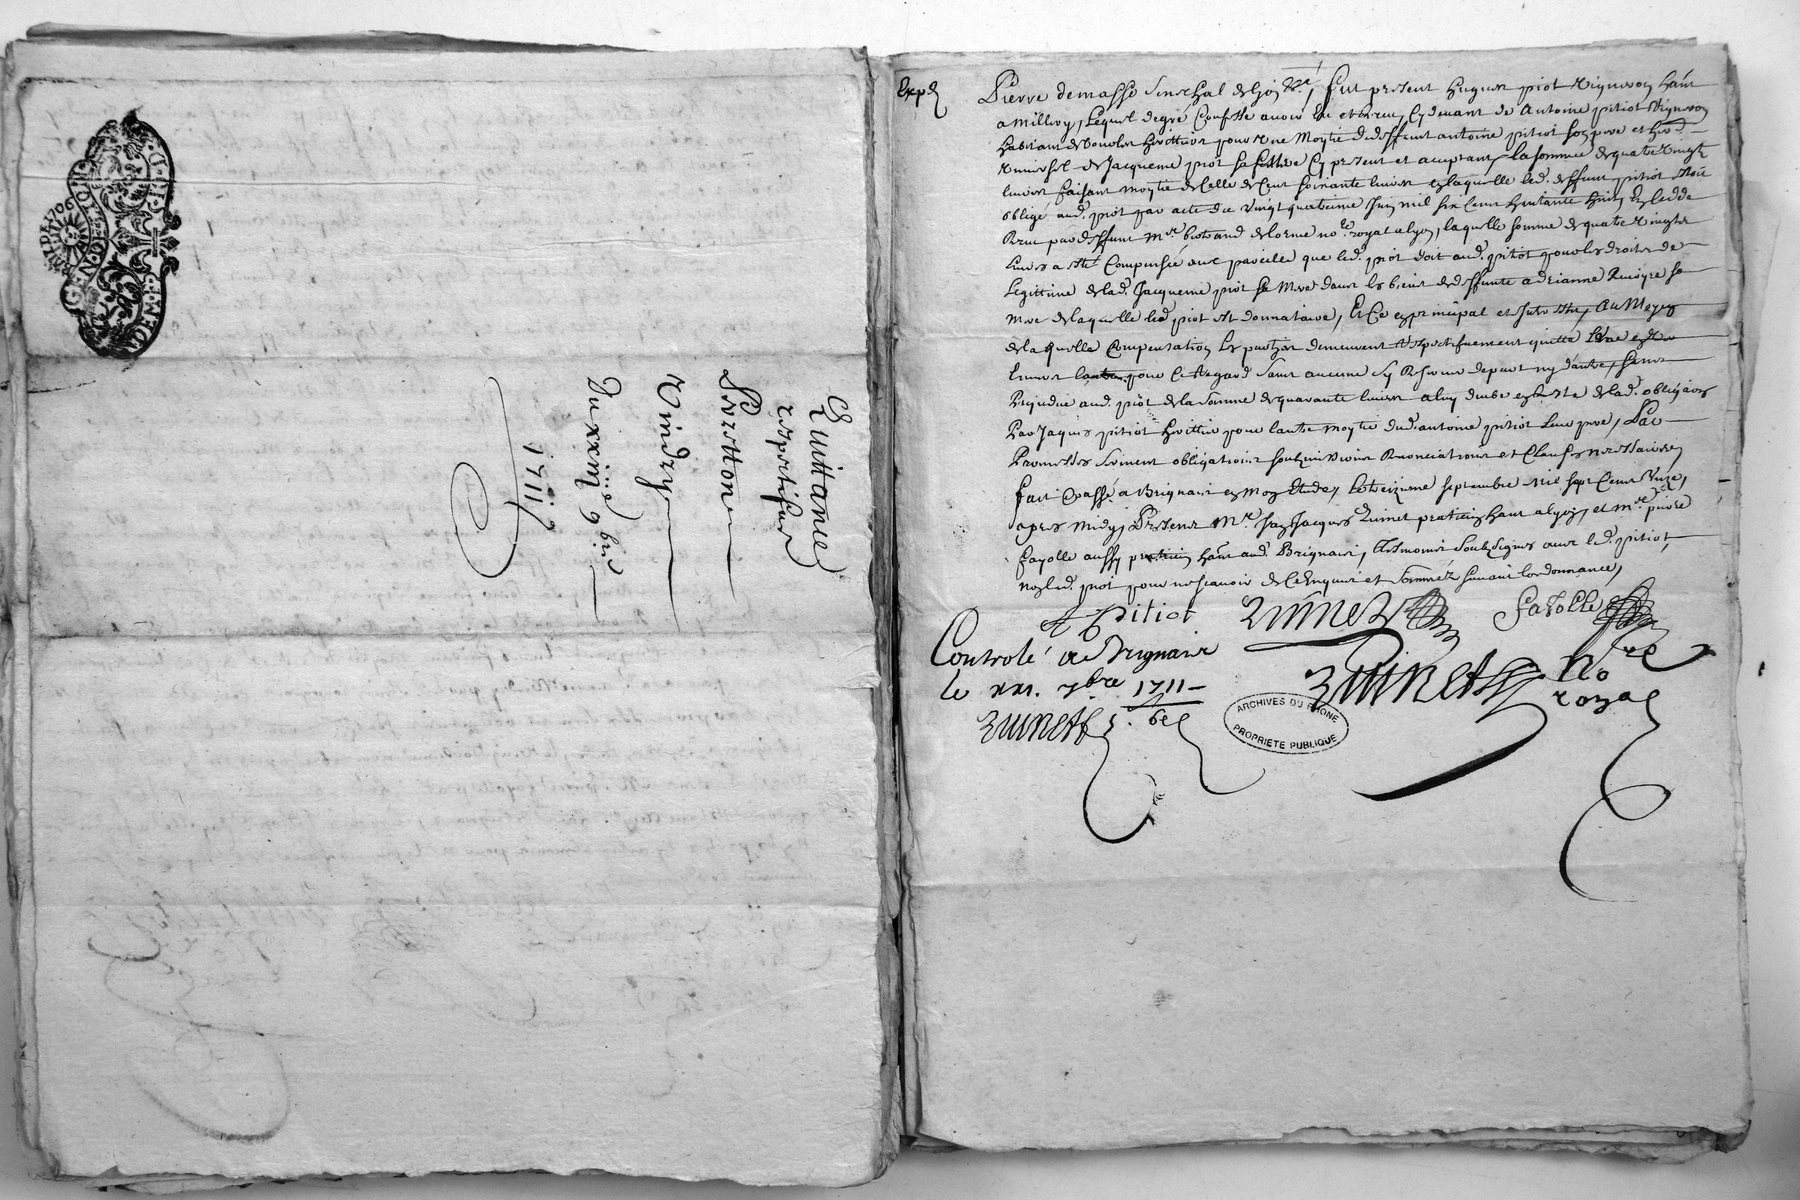 GEN. DE LION
MOIEN PAP.
ROLE DE
1706
Quittance
respective
Peretton
Vindry
Du xxiij 9bre
1711
Exp.
Pierre demasso senechal de lion &c.a, fut present hugues piot vigneron hant
a millery, lequel de gré Confesse avoir Eu et Receu, Cy devant de Antoine pitiot vigneron
habitant de heritier pour Une Moytié dudeffunt antoine pitiot son pere et her.
Universel de Jacqueme piot sa Cy present et aceptant, la somme de quatre vingtz
livres faisant moytié de Celle de Cent soixante livres en laquelle led. deffunt pitiot estoit
obligé aud. piot par acte du vingt quatrieme Juin mil six Cens huitante huit,
Receu par deffunt Mre bertrand delorme nore royal a lyon, laquelle somme de quatre vingtz
livres a esté Compensée avec pareille que led. piot doit aud. pitiot pour les droits de
Legittime de lad. Jacqueme piot sa Mere dans les biens de deffunte adrianne sa
Mere de laquelle led. piot est donnataire, Et Ce en principal et Interestz, Au Moyen
de laquelle Compensation les parties demeurent respectivement quittes
l'autre pour Ce Regard sans aucune Reserve de part ny d'autre, sans
Prejudice aud. piot de la somme de quarante livres a luy deube en reste de lad. obligation
Par Jaques pitiot heritier pour l'autre moytié dud. antoine pitiot leur pere, Par
Promesses serment obligations soubmissions Renonciations et Clauses necessaires,
fait et passé a Brignais en mon Etude, Le treizieme septembre Mil sept Cens Unze,
apres midy, Presens Mre Jean Jacques Quinet praticien hant a lyon, et Mre pierre
fayolle aussy praticien hant aud. Brignais, tesmoins soubzsignes avec led. pitiot,
non led. piot pour ne scavoir de Ce Enquis et sommé suivant l'ordonnance,
A Pitiot Quinet Fayolle
Controlé a Brignais
le xxi. 7bre 1711
Quinet
Quinet Nore
royal
ARCHIVES DU RHONE
PROPRIETE PUBLIQUE